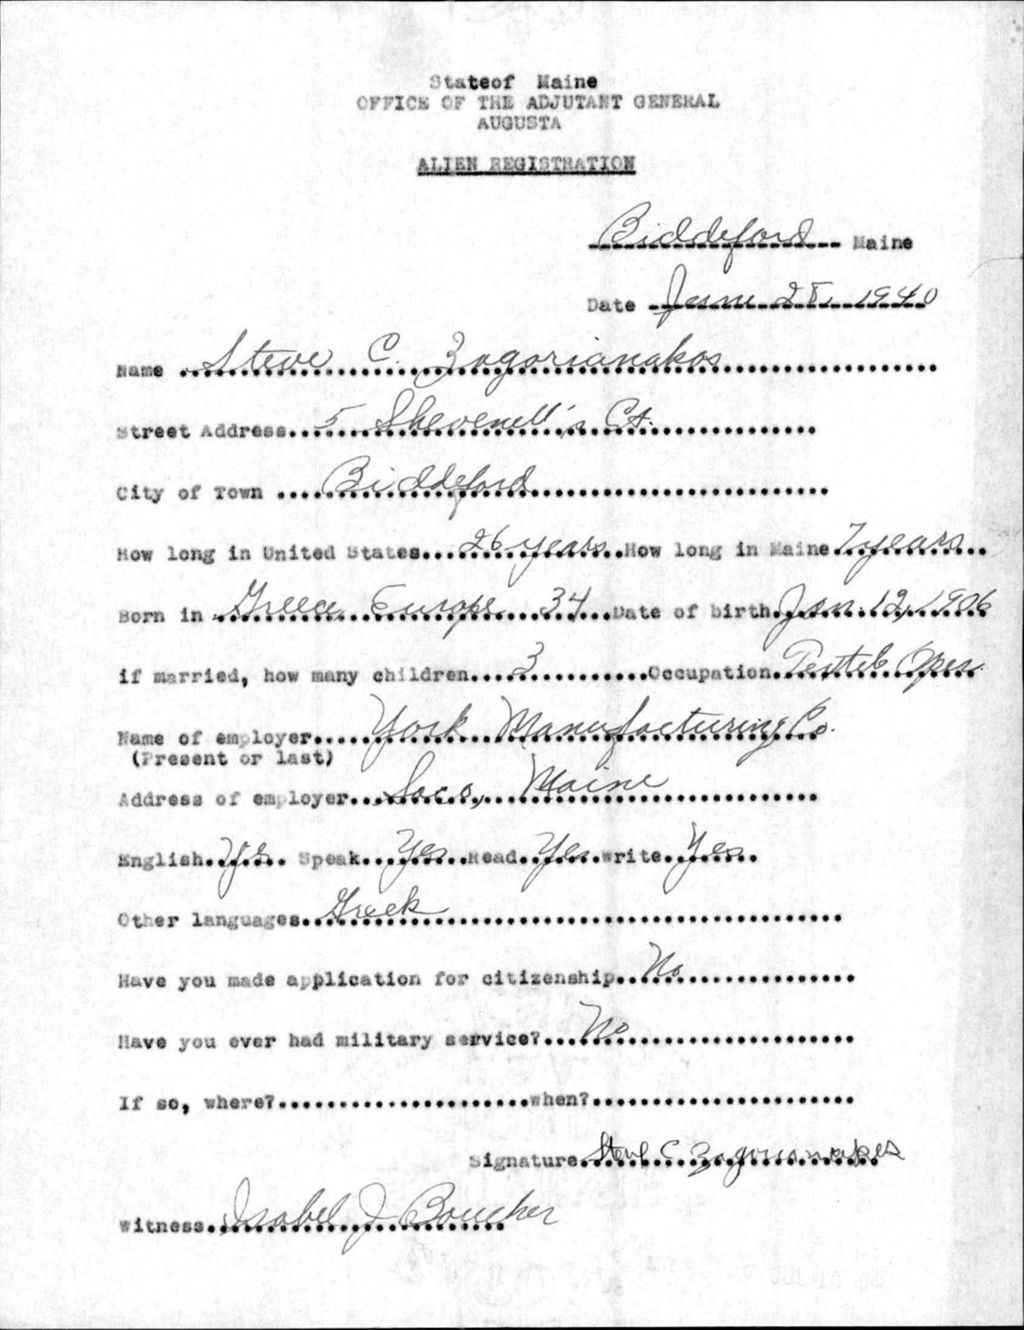 Stateof Maine
OFFICE OF THE ADJUTANT GENERAL
AUGUSTA
ALIEN REGISTRATION
Biddeford Maine
Date June 28, 1940
Name Steve C. Zagorianakos
Street Address 5 Shevenell's Ct.
City of Town Biddeford
How long in United States 26 years How long in Maine 7 years
Born in Greece Europe 34 Date of birth Jan. 12, 1906
if married, how many children 3 Occupation Textile Oper.
Name of employer York Manufacturing Co.
(Present or last)
Address of employer Saco, Maine
English Yes Speak Yes Read Yes write Yes
Other languages Greek
Have you made application for citizenship No
Have you ever had military service? No
If so, where? when?
Signature Steve C Zagorianakos
Witness Isabel J Boucher